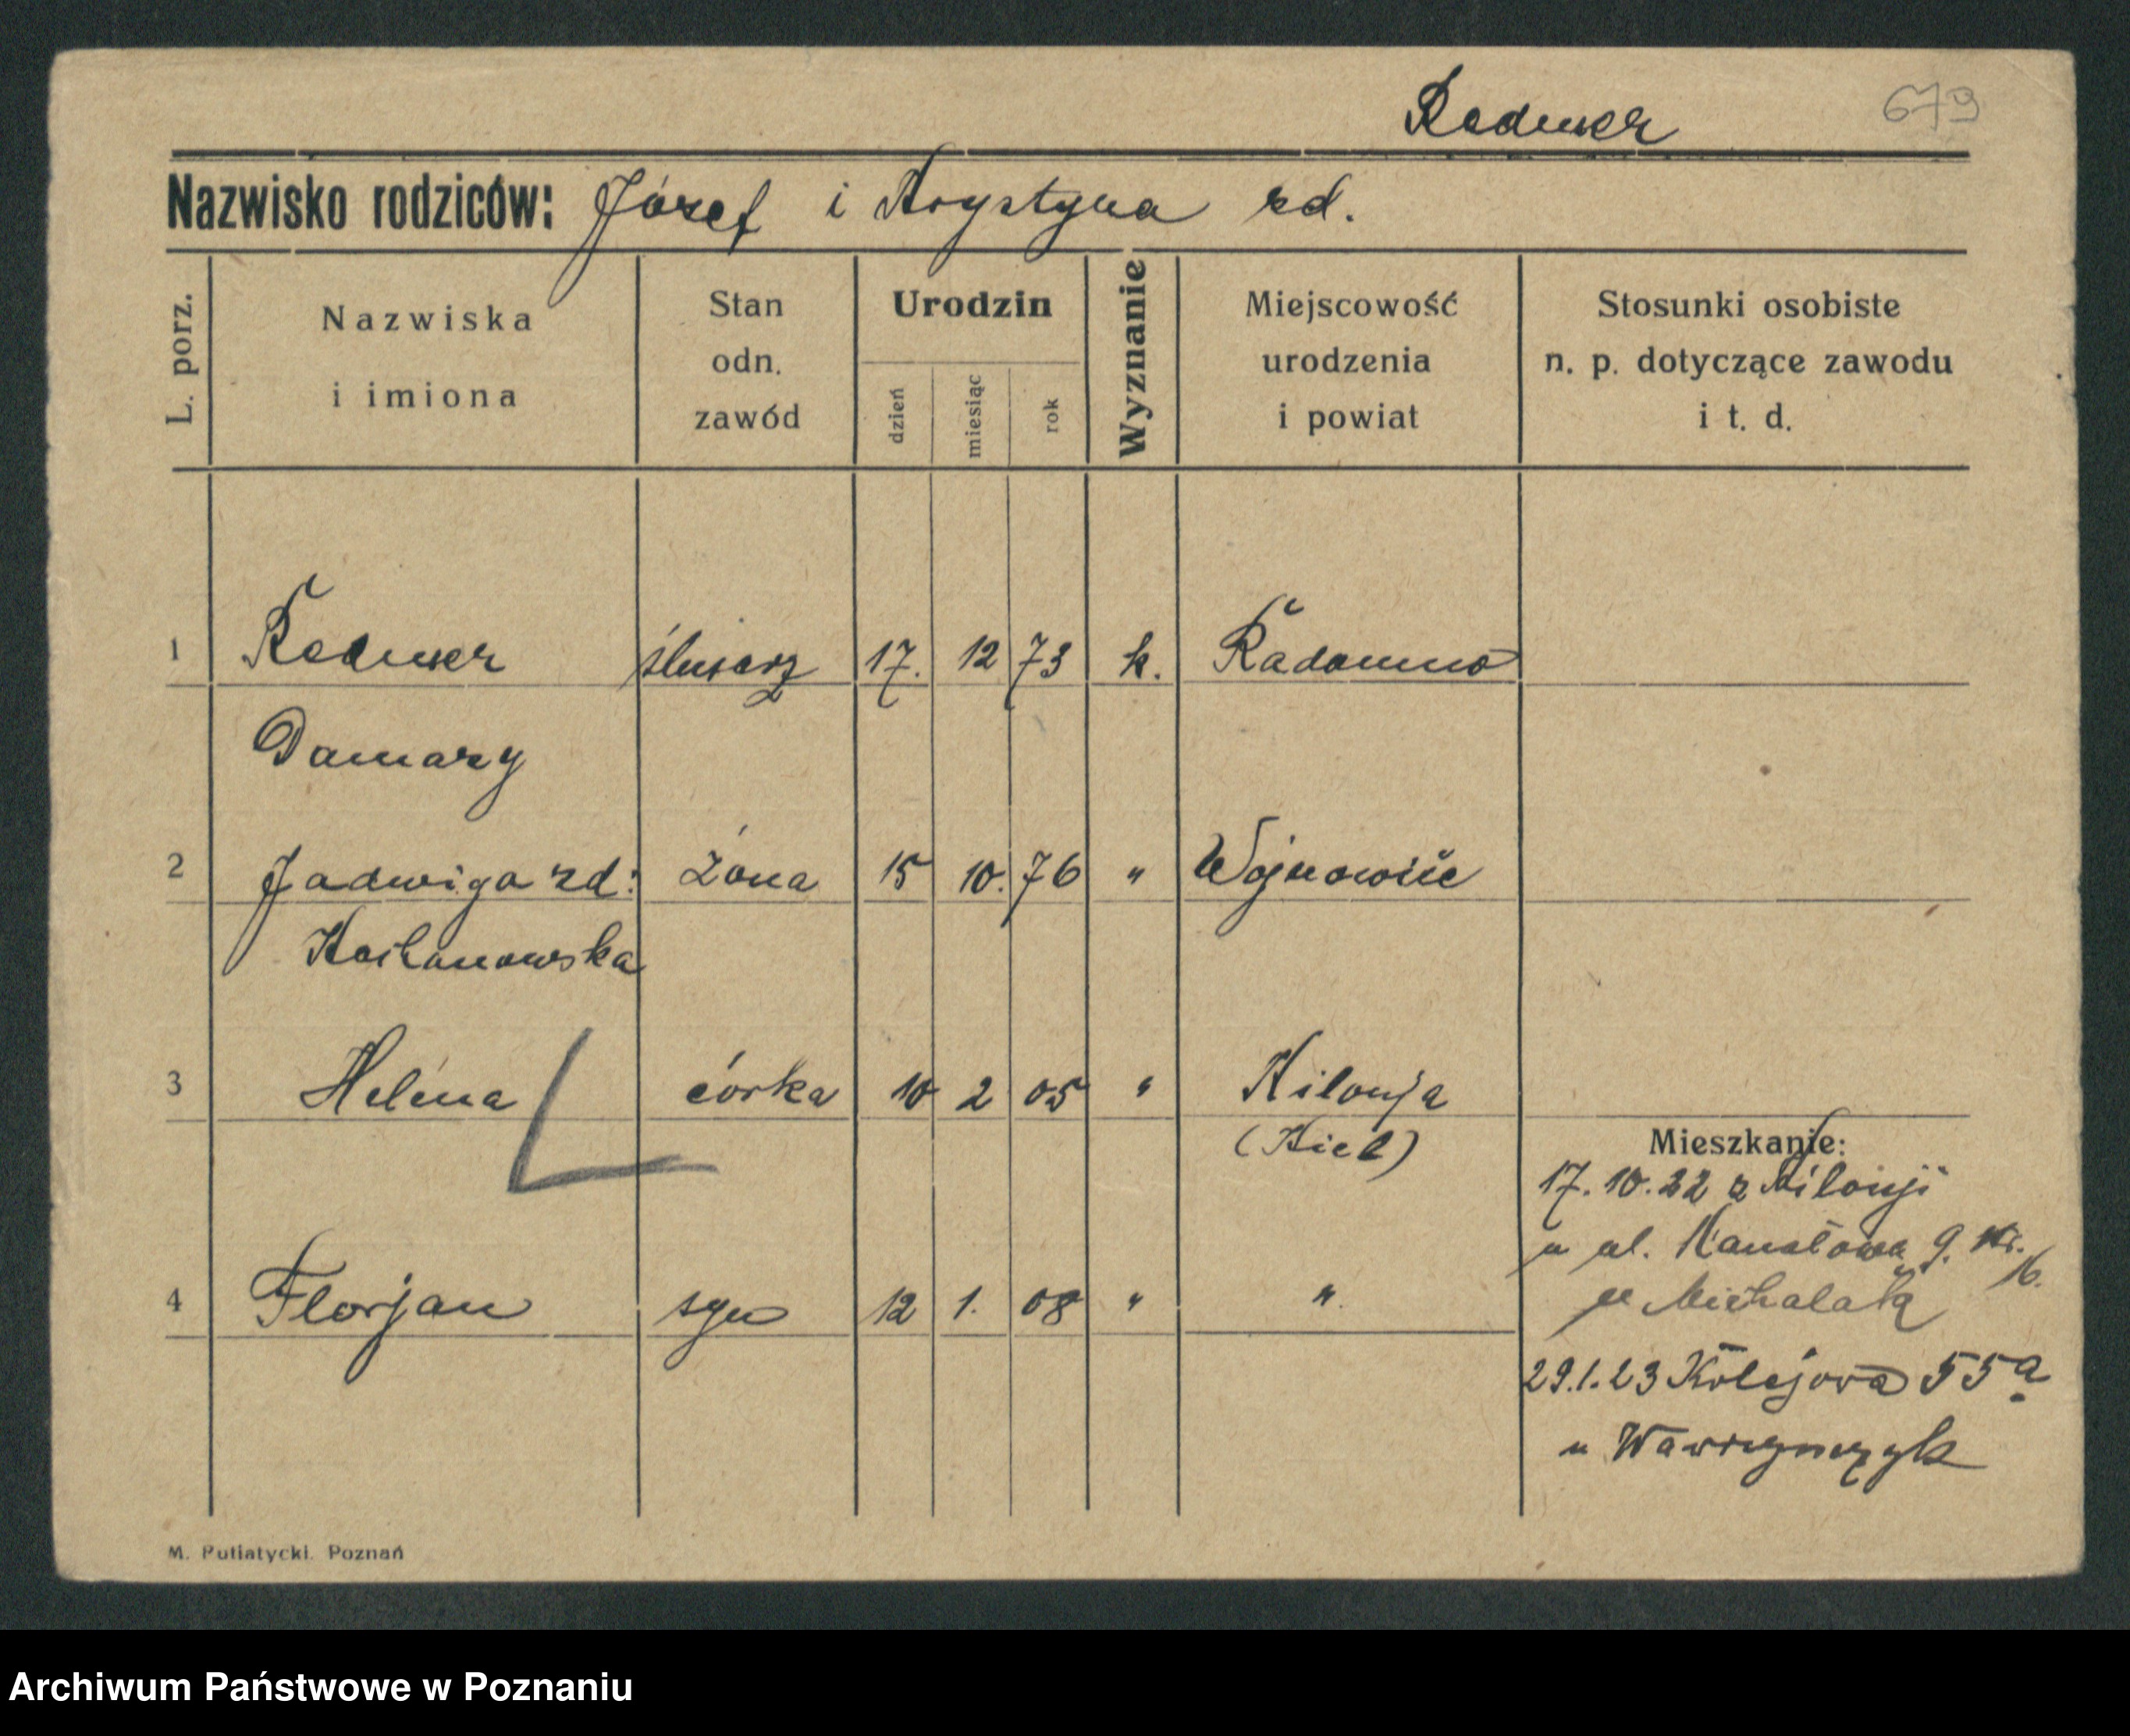 Redmer 679
Nazwisko rodziców: Józef i Krystyna rd.
L. porz. Nazwiska i imiona Stan odn. zawód Urodzin dzień miesiąc rok Wyznanie Miejscowość urodzenia i powiat Stosunki osobiste n. p. dotyczące zawodu i t. d.
1 Redmer ślusarz 17. 12 73 k. Radomno
Damazy
2 Jadwiga rd: żona 15 10. 76 " Wojnowice
Kochanowska
3 Helena córka 10 2 05 " Kilonja
(Kiel)
4 Florjan syn 12 1. 08 " ".
Mieszkanie:
17.10.22 z Kilonji
u ul. Kanałowa 9.
16.
p. Michalak
29.1.23 Kolejowa 55a
u Wawrzynczyk
M. Putiatycki. Poznań
Archiwum Państwowe w Poznaniu